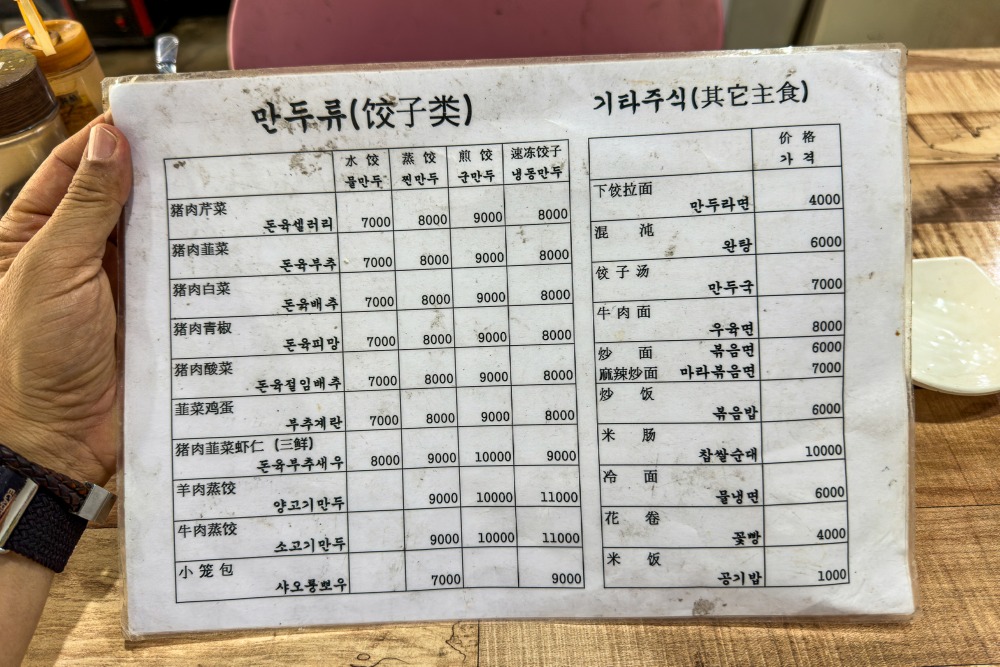 만두류(饺子类)
水 饺 蒸 饺 煎 饺 速冻饺子
물만두 찐만두 군만두 냉동만두
猪肉芹菜
돈육샐러리 7000 8000 9000 8000
猪肉韭菜
돈육부추 7000 8000 9000 8000
猪肉白菜
돈육배추 7000 8000 9000 8000
猪肉青椒
돈육피망 7000 8000 9000 8000
猪肉酸菜
돈육절임배추 7000 8000 9000 8000
韭菜鸡蛋
부추계란 7000 8000 9000 8000
猪肉韭菜虾仁 (三鲜)
돈육부추새우 8000 9000 10000 9000
羊肉蒸饺
양고기만두 9000 10000 11000
牛肉蒸饺
소고기만두 9000 10000 11000
小 笼 包
샤오롱뽀우 7000 9000
기타주식(其它主食)
价 格
가 격
下饺拉面
만두라면 4000
混 沌
완탕 6000
饺 子 汤
만두국 7000
牛 肉 面
우육면 8000
炒 面 볶음면 6000
麻辣炒面 마라볶음면 7000
炒 饭
볶음밥 6000
米 肠
찹쌀순대 10000
冷 面
물냉면 6000
花 卷
꽃빵 4000
米 饭
공기밥 1000